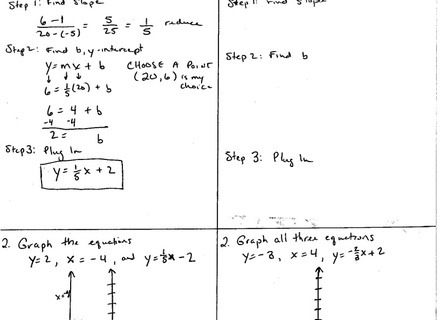 Step 1: Find slope
6-1/20-(-5) = 5/25 = 1/5 reduce
Step 2: Find b, y-intercept
y = mx + b
CHOOSE A POINT
(20,6) is my
choice
6 = 1/5(20) + b
6 = 4 + b
-4 -4
2 = b
Step 3: Plug In
y = 1/5x + 2
Step 1: Find slope
Step 2: Find b
Step 3: Plug In
2. Graph the equations
y=2, x=-4, and y=1/5x-2
2. Graph all three equations
y=-3, x=4, y=
x+2